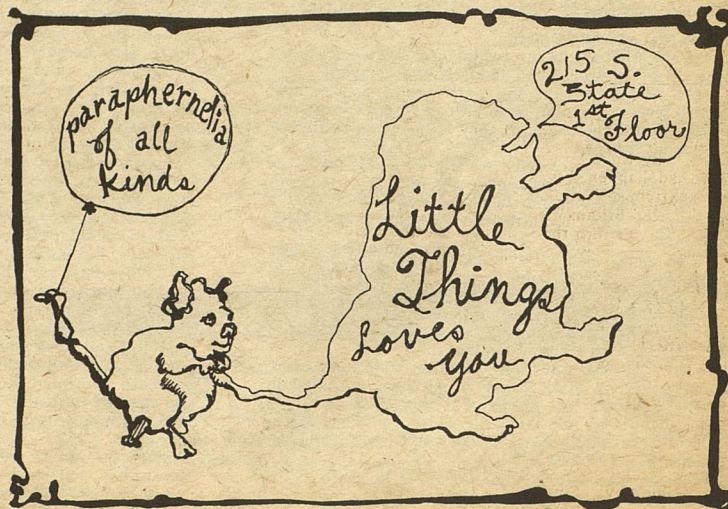 paraphernelia
of all
kinds
215 S.
State
1st Floor
Little
Things
Loves
you